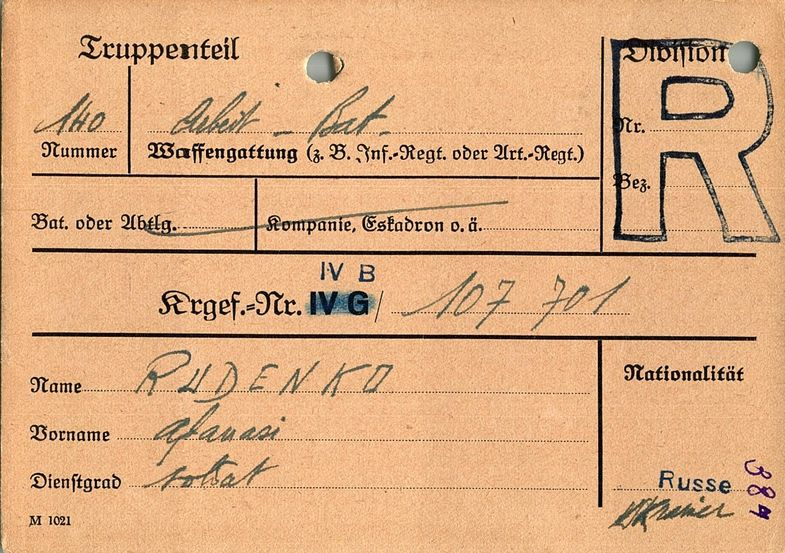 Truppenteil
Division
R
140
Arbeit - Bat.
Nr.
Nummer
Waffengattung (z. B. Inf.-Regt. oder Art.-Regt.)
Bez.
Bat. oder Abtlg.
Kompanie, Eskadron o. ä.
IV B
Krgef.-Nr. IV G/ 107 701
Name RUDENKO
Nationalität
Vorname Afanasi
Dienstgrad soltat
Russe
384
M 1021